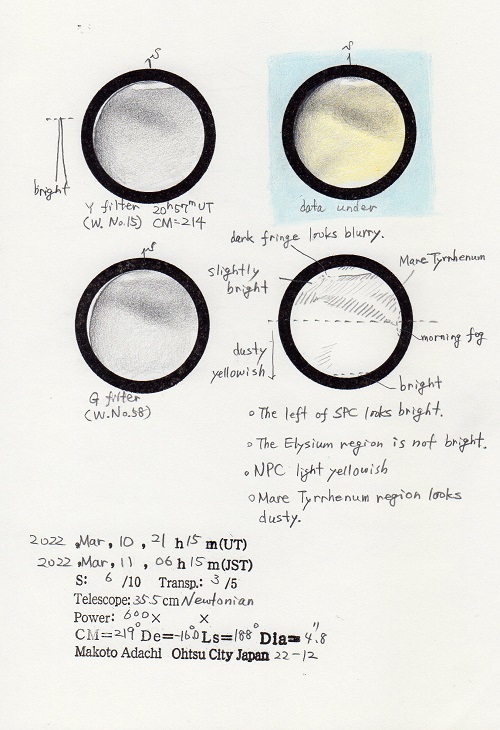 S
S
bright
Y filter 20h57m UT
(W. No.15) CM=214
data under
dark fringe looks blurry.
S
slightly
bright
Mare Tyrrhenum
morning fog
dusty
yellowish
bright
G filter
(W.No.58)
○ The left of SPC looks bright.
○ The Elysium region is not bright.
○ NPC light yellowish
○ Mare Tyrrhenum region looks
dusty.
2022 ,Mar, 10 , 21 h 15 m(UT)
2022 ,Mar, 11 , 06 h 15 m(JST)
S: 6 /10 Transp.: 3 /5
Telescope: 35.5 cm Newtonian
Power: 600× ×
CM=219° De=-16.0 Ls=188° Dia=4".8
Makoto Adachi Ohtsu City Japan 22-12